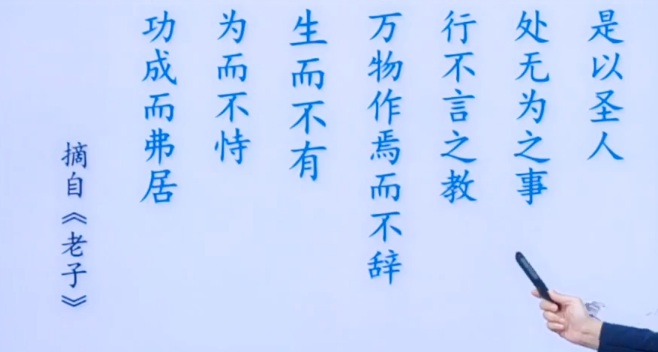 是以圣人
处无为之事
行不言之教
万物作焉而不辞
生而不有
为而不恃
功成而弗居
摘自《老子》